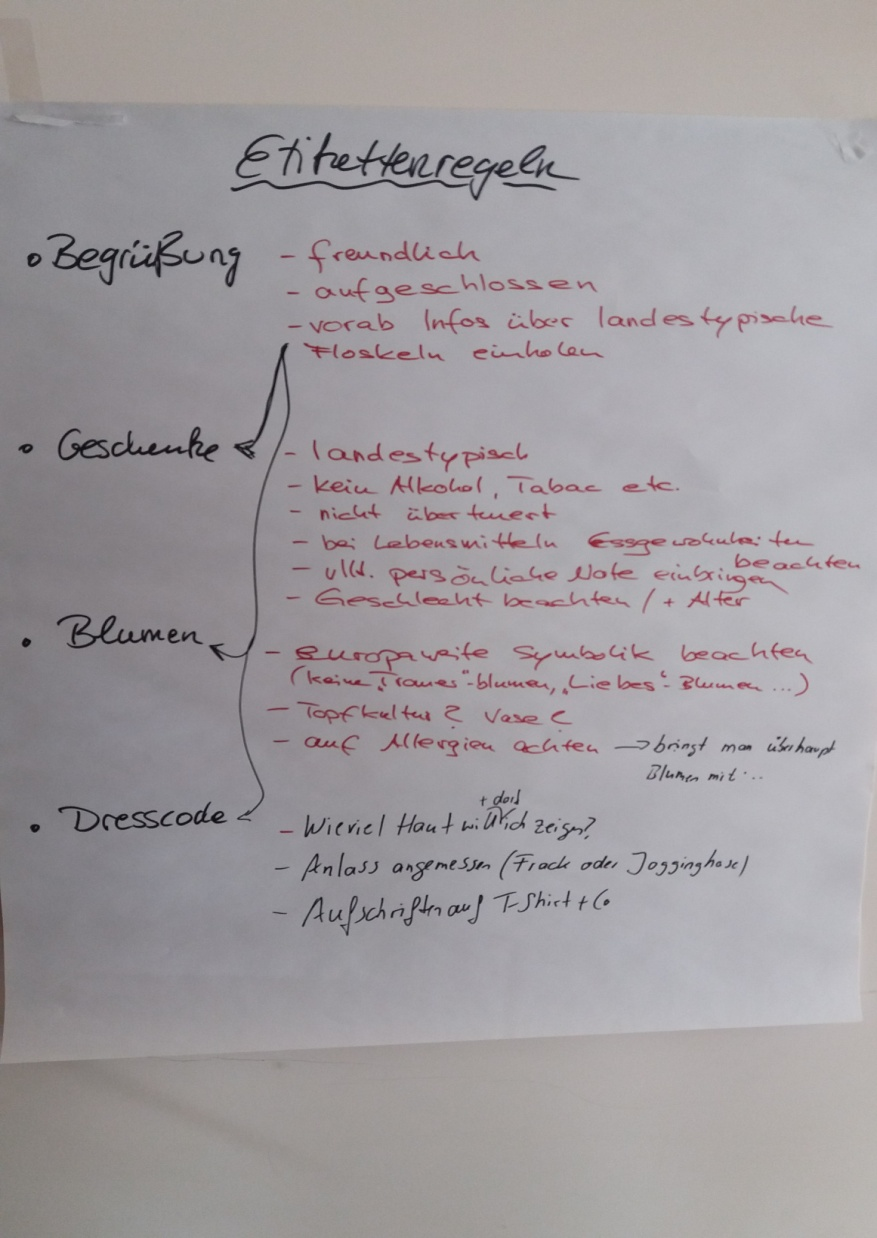 Etikettenregeln
• Begrüßung
- freundlich
- aufgeschlossen
- vorab Infos über landestypische
Floskeln einholen
• Geschenke
- landestypisch
- kein Alkohol, Tabac etc.
- nicht überteuert
- bei Lebensmitteln Essgewohnheiten
beachten
- vllt. persönliche Note einbringen
- Geschlecht beachten / + Alter
• Blumen
- europaweite Symbolik beachten
(keine „Trauer"-blumen, „Liebes"-Blumen ...)
- Topfkultur? Vase?
- auf Allergien achten → bringt man überhaupt
Blumen mit...
• Dresscode
+ darf
- Wieviel Haut will ich zeigen?
- Anlass angemessen (Frack oder Jogginghose)
- Aufschriften auf T-Shirt + Co